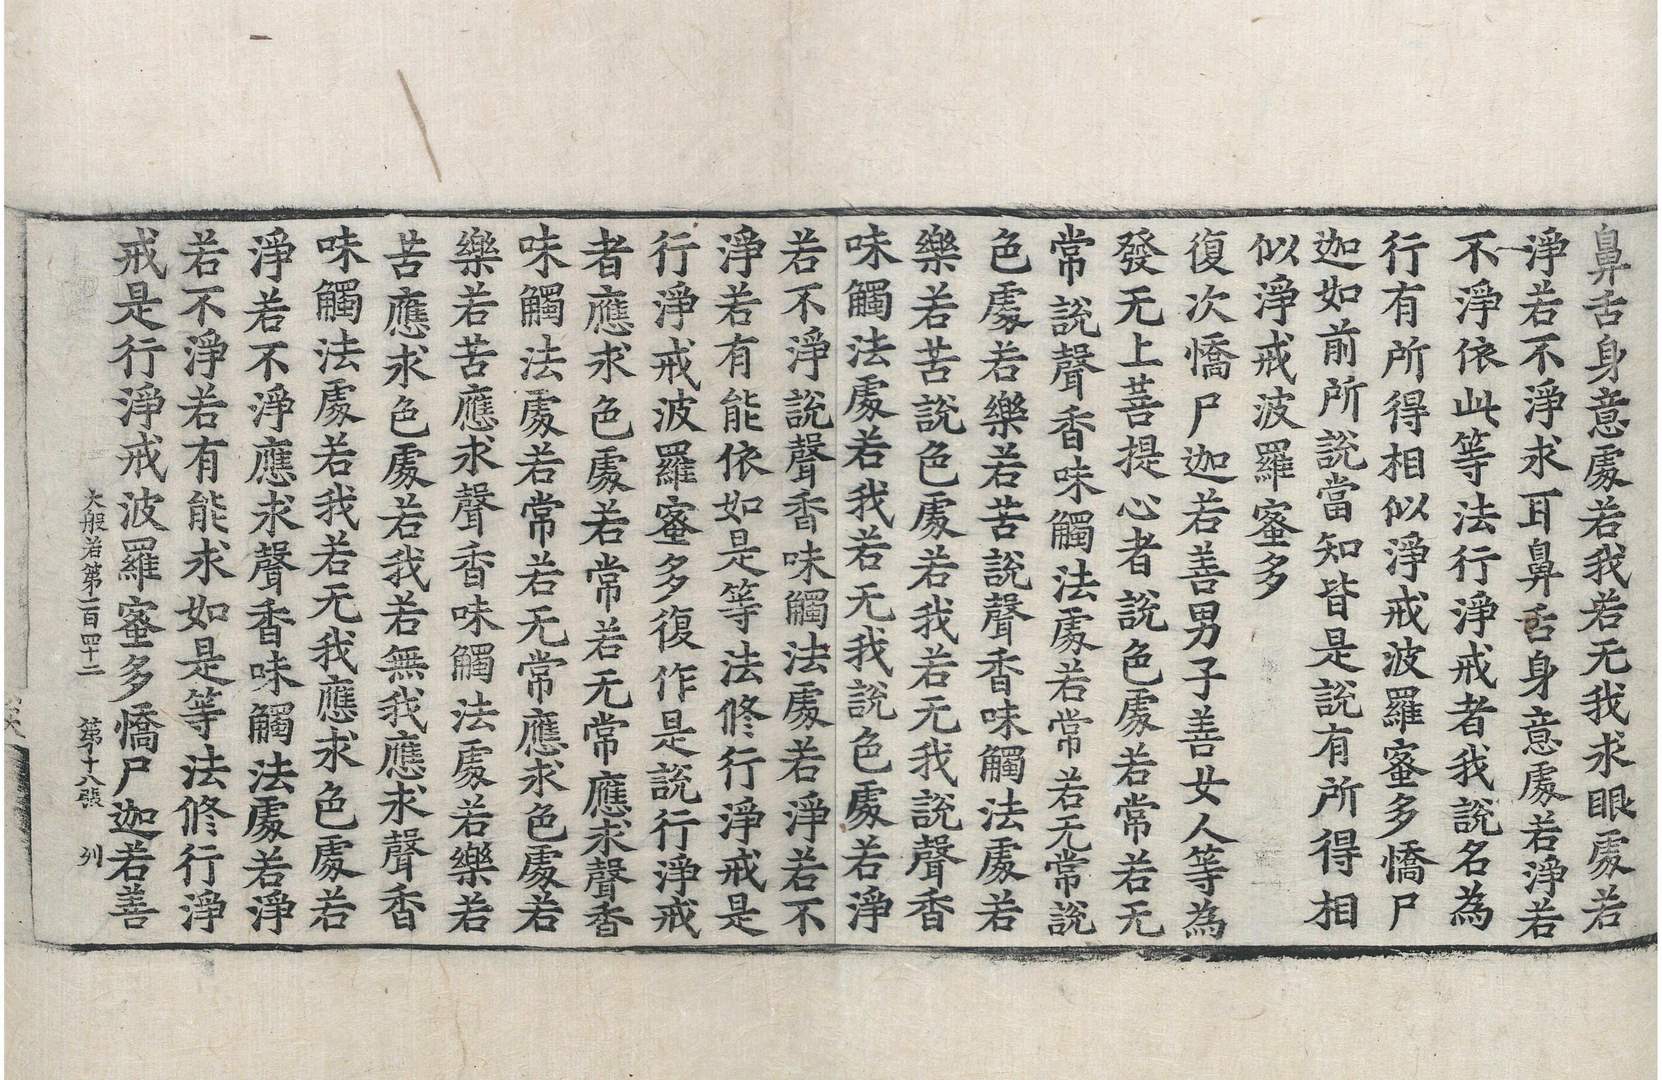 鼻舌身意處若我若无我求眼處若
淨若不淨求耳鼻舌身意處若淨若
不淨依此等法行淨戒者我說名為
行有所得相似淨戒波羅蜜多憍尸
迦如前所說當知皆是說有所得相
似淨戒波羅蜜多
復次憍尸迦若善男子善女人等為
發无上菩提心者說色處若常若无
常說聲香味觸法處若常若无常說
色處若樂若苦說聲香味觸法處若
樂若苦說色處若我若无我說聲香
味觸法處若我若无我說色處若淨
若不淨說聲香味觸法處若淨若不
淨若有能依如是等法修行淨戒是
行淨戒波羅蜜多復作是說行淨戒
者應求色處若常若无常應求聲香
味觸法處若常若无常應求色處若
樂若苦應求聲香味觸法處若樂若
苦應求色處若我若無我應求聲香
味觸法處若我若无我應求色處若
淨若不淨應求聲香味觸法處若淨
若不淨若有能求如是等法修行淨
戒是行淨戒波羅蜜多憍尸迦若善
大般若第二百四十二 第十八張 列